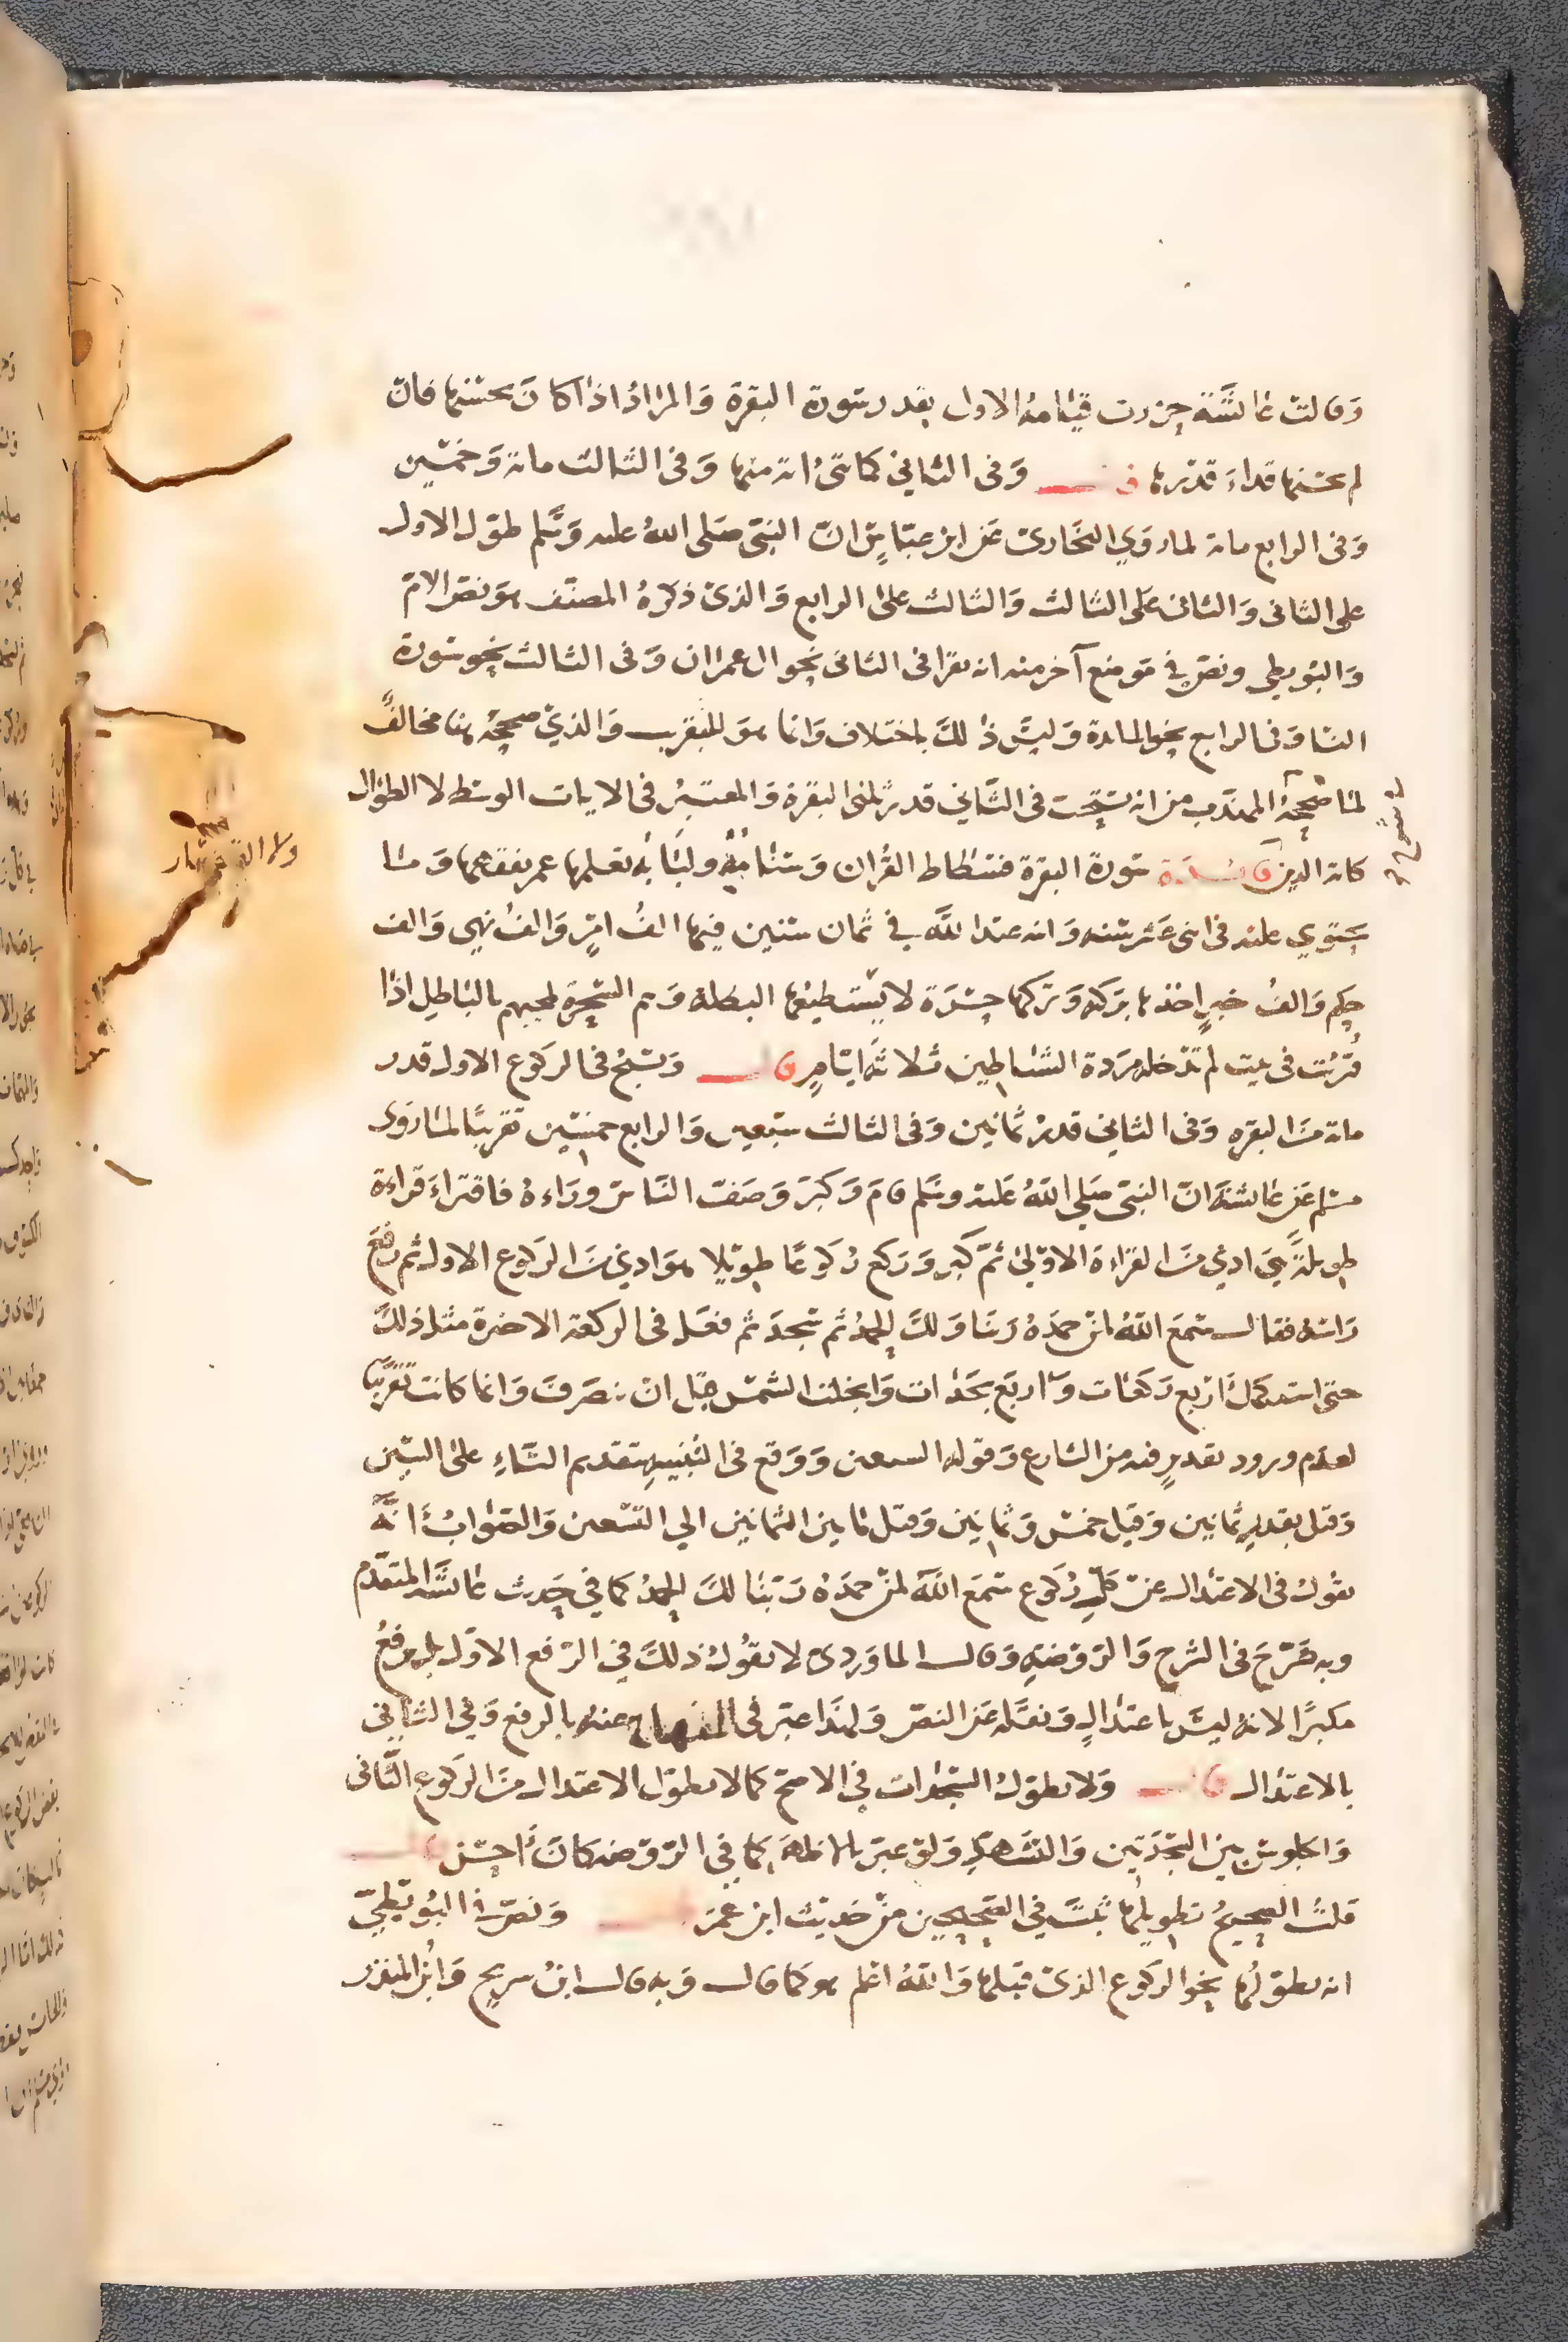 وقالت عائشة حزرت قيامه الاول بقدر سورة البقرة والمراد اذا كان يحسنها فان
لم يحسنها قراء قدرها قال وفى الثاني كمائتى اية منها وفى الثالث مائة وخمسين
وفى الرابع مائة لما روي البخارى عن ابن عباس ان النبى صلى الله عليه وسلم طول الاول
على الثانى والثانى على الثالث والثالث على الرابع والذى ذكره المصنف هو نص الام
والبويطى ونص فى موضع آخر منه انه يقرا فى الثانى نحو ال عمران وفى الثالث نحو سورة
النسا وفى الرابع نحو المائدة وليس ذلك باختلاف وانما هو للتقريب والذي صححه هنا مخالف
لما صححه المهذب من انه يستحب فى الثاني قدر ثلثى البقرة والمعتبر فى الايات الوسط لا الطوال
كاية الدين فائدة سورة البقرة فسطاط القران وسنامه ولبابه تعلمها عمر بفقهها وما
يحتوي عليه فى اثنى عشر سنه وابنه عبد الله في ثمان سنين فيها الف امر والف نهي والف
حكم والف خبر اخذها بركه وتركها حسرة لا يستطيعها البطلة وهم السحرة لمجيهم بالباطل اذا
قرئت فى بيت لم تدخله مردة الشياطين ثلاثة ايام قال ويسبح فى الركوع الاول قدر
مائة من البقره وفى الثاني قدر ثمانين وفى الثالث سبعين والرابع خمسين تقريبًا لما روى
مسلم عن عائشة ان النبى صلي الله عليه وسلم قام وكبر وصف الناس وراءه فاقتراء قراءة
طويلة هي ادني من القراءة الاولى ثم كبر وركع ركوعًا طويلا هو ادني من الركوع الاول ثم رفع
راسه فقال سمع الله لمن حمده ربنا ولك الحمد ثم سجد ثم فعل فى الركعة الاخرة مثل ذلك
حتى استكمل اربع ركعات واربع سجدات وانجلت الشمس قبل ان ينصرف وانما كانت تقريبًا
لعدم ورود تقدير فيه من الشارع وقوله السبعين ووقع فى التنبيه بتقديم التاء على السين
وقيل بقدر ثمانين وقيل خمس وثمانين وقيل ما بين الثمانين الي التسعين والصواب انه
يقول فى الاعتدال عن كل ركوع سمع الله لمن حمده ربنا لك الحمد كما في حديث عائشة المتقدم
وبه صرح فى الشرح والروضة وقال الماوردى لا يقول ذلك فى الرفع الاول بل يرفع
مكبرًا لانه ليس باعتدال ونقله عن النص ولهذا عبر فى المنهاج عنه بالرفع وفى الثاني
بالاعتدال قال ولا يطول السجدات فى الاصح كما لا يطول الاعتدال من الركوع الثانى
والجلوس بين السجدتين والتشهد ولو عبر كما فى الروضة كان أحسن قال
قلت الصحيح تطويلها ثبت فى الصحيحين من حديث ابن عمر ونص فى البويطي
انه يطولها نحو الركوع الذى قبلها والله اعلم هو كما قال وبه قال ابن سريج وابن المنذر